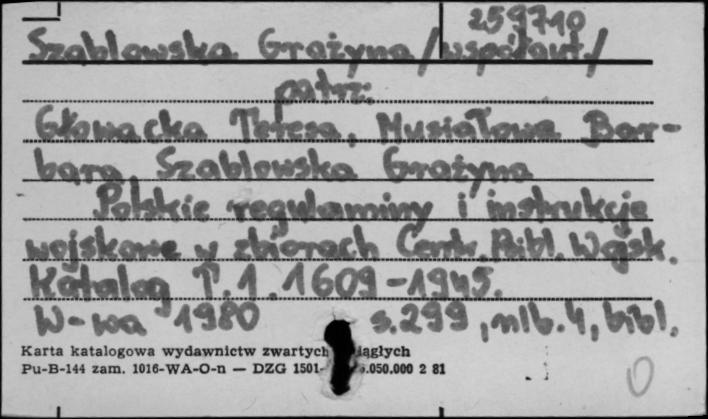 259710
Szablowska Grażyna /współaut./
patrz:
Głowacka Teresa, Musiałowa Bar-
bara, Szablowska Grażyna
Polskie regulaminy i instrukcje
wojskowe w zbiorach Centr. Bibl. Wojsk.
Katalog T. 1. 1609-1945.
W-wa 1980 s. 299, nlb. 4, bibl.
Karta katalogowa wydawnictw zwartych ągłych
Pu-B-144 zam. 1016-WA-O-n — DZG 1501- .050.000 2 81
0